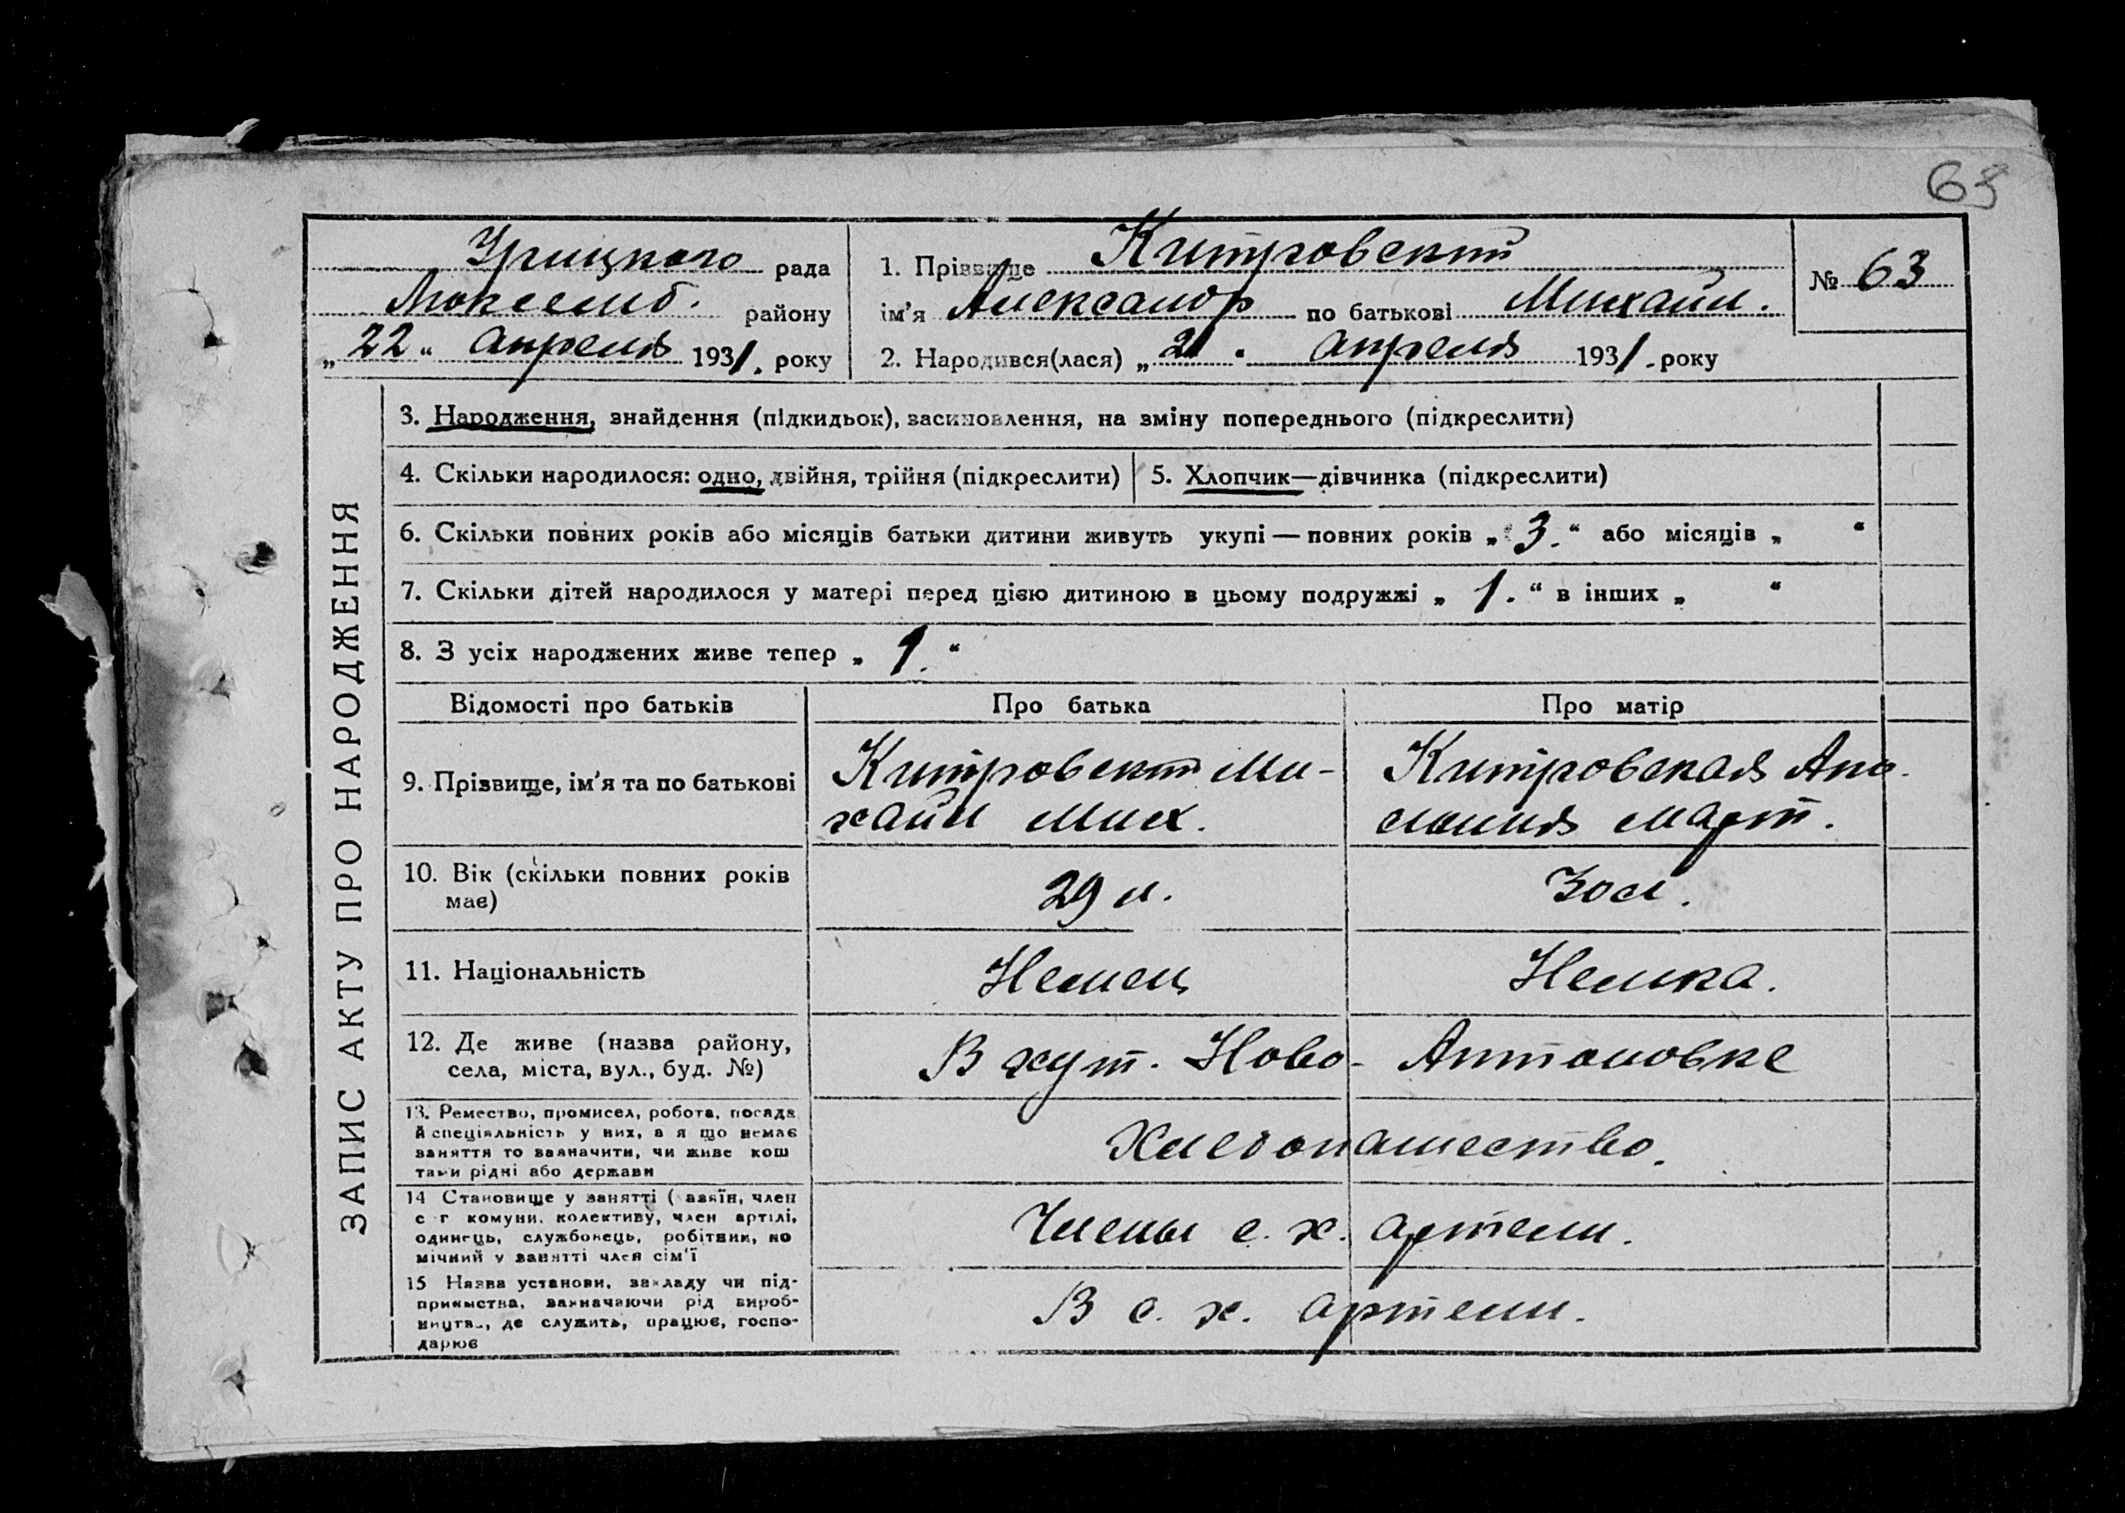 63
Урицкого рада
Люксемб. району
„22“ апреля 1931. року
1. Прізвище Китровский
ім'я Александр по батькові Михайл.
2. Народився(лася) „21“ апреля 1931. року
№ 63
ЗАПИС АКТУ ПРО НАРОДЖЕННЯ
3. Народження, знайдення (підкидьок), засиновлення, на зміну попереднього (підкреслити)
4. Скільки народилося: одно, двійня, трійня (підкреслити)
5. Хлопчик—дівчинка (підкреслити)
6. Скільки повних років або місяців батьки дитини живуть укупі — повних років „3.“ або місяців „ “
7. Скільки дітей народилося у матері перед цією дитиною в цьому подружжі „1.“ в інших „ “
8. З усіх народжених живе тепер „1.“
Відомості про батьків Про батька Про матір
9. Прізвище, ім'я та по батькові
Китровский Ми-
хайл Мих.
Китровская
март.
10. Вік (скільки повних років
має)
29 л.
30 л.
11. Національність Немец Немка.
12. Де живе (назва району,
села, міста, вул., буд. №)
В хут. Ново-Антоновке
13. Ремество, промисел, робота, посада
й спеціяльність у них, а я що немає
заняття то зазначити, чи живе кош
тами рідні або держави
Хлебопашество.
14 Становище у занятті ( азяїн, член
с г комуни, колективу, член артілі,
одинець, службовець, робітник, по
мічний у занятті член сім'ї
Члены с. х. артели.
15 Назва установи, закладу чи під-
приємства, зазначаючи рід вироб-
ництва, де служить, працює, госпо-
дарює
В с. х. артели.